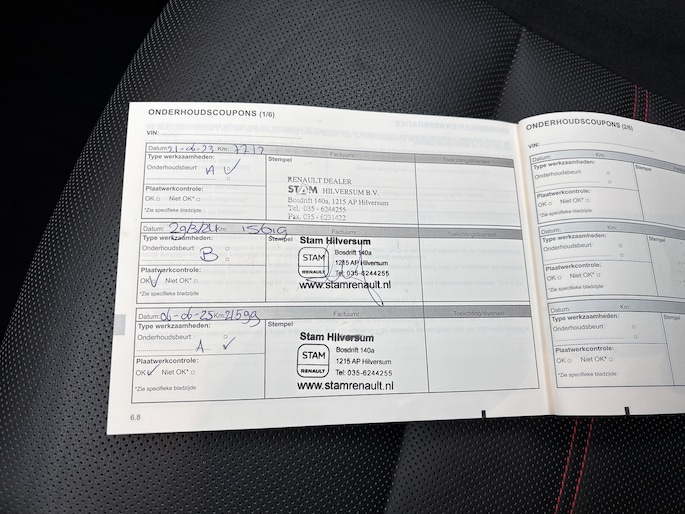 ONDERHOUDSCOUPONS (1/6)
VIN:
Datum: 21-06-23 Km: 7717
Type werkzaamheden: Stempel Factuurnr. Toelichting/diversen
Onderhoudsbeurt A ✓
RENAULT DEALER
STAM HILVERSUM B.V.
Bosdrift 140a, 1215 AP Hilversum
Tel. 035 - 6244255
Fax. 035 - 6231422
Plaatwerkcontrole:
OK Niet OK*
*Zie specifieke bladzijde
Datum: Km: 15619
Type werkzaamheden: Stempel Factuurnr. Toelichting/diversen
Onderhoudsbeurt B
Stam Hilversum
STAM
RENAULT
Bosdrift 140a
1215 AP Hilversum
Tel: 035-6244255
www.stamrenault.nl
Plaatwerkcontrole:
OK ✓ Niet OK*
*Zie specifieke bladzijde
Datum: 06-06-25 Km: 21599
Type werkzaamheden: Stempel Factuurnr. Toelichting/diversen
Onderhoudsbeurt A ✓
Stam Hilversum
STAM
RENAULT
Bosdrift 140a
1215 AP Hilversum
Tel: 035-6244255
www.stamrenault.nl
Plaatwerkcontrole:
OK ✓ Niet OK*
*Zie specifieke bladzijde
6.8
ONDERHOUDSCOUPONS (2/6)
VIN:
Datum: Km:
Type werkzaamheden:
Onderhoudsbeurt
Plaatwerkcontrole:
OK Niet OK*
*Zie specifieke bladzijde
Datum: Km:
Type werkzaamheden: Stempel
Onderhoudsbeurt
Plaatwerkcontrole:
OK Niet OK*
*Zie specifieke bladzijde
Datum: Km
Type werkzaamheden: Stempel
Onderhoudsbeurt
Plaatwerkcontrole:
OK Niet OK*
*Zie specifieke bladzijde